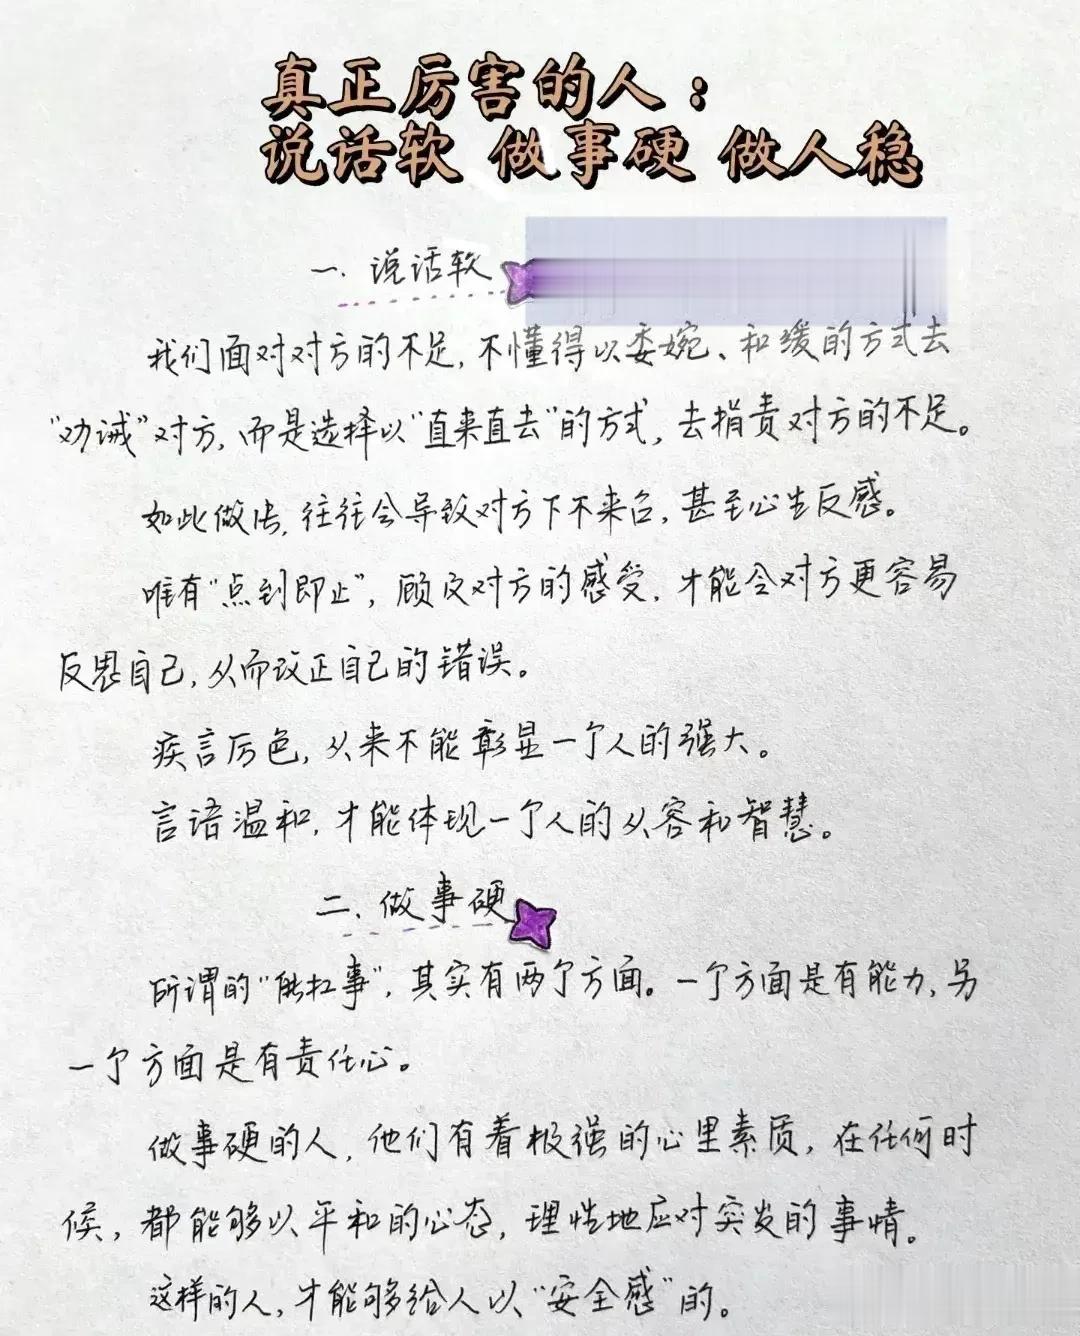 真正厉害的人：
说话软 做事硬 做人稳
一、说话软
我们面对对方的不足，不懂得以委婉、和缓的方式去
“劝诫”对方，而是选择以“直来直去”的方式，去指责对方的不足。
如此做法，往往会导致对方下不来台，甚至心生反感。
唯有“点到即止”，顾及对方的感受，才能令对方更容易
反思自己，从而改正自己的错误。
疾言厉色，从来不能彰显一个人的强大。
言语温和，才能体现一个人的从容和智慧。
二、做事硬
所谓的“能扛事”，其实有两个方面。一个方面是有能力，另
一个方面是有责任心。
做事硬的人，他们有着极强的心里素质，在任何时
候，都能够以平和的心态，理性地应对突发的事情。
这样的人，才能够给人以“安全感”的。